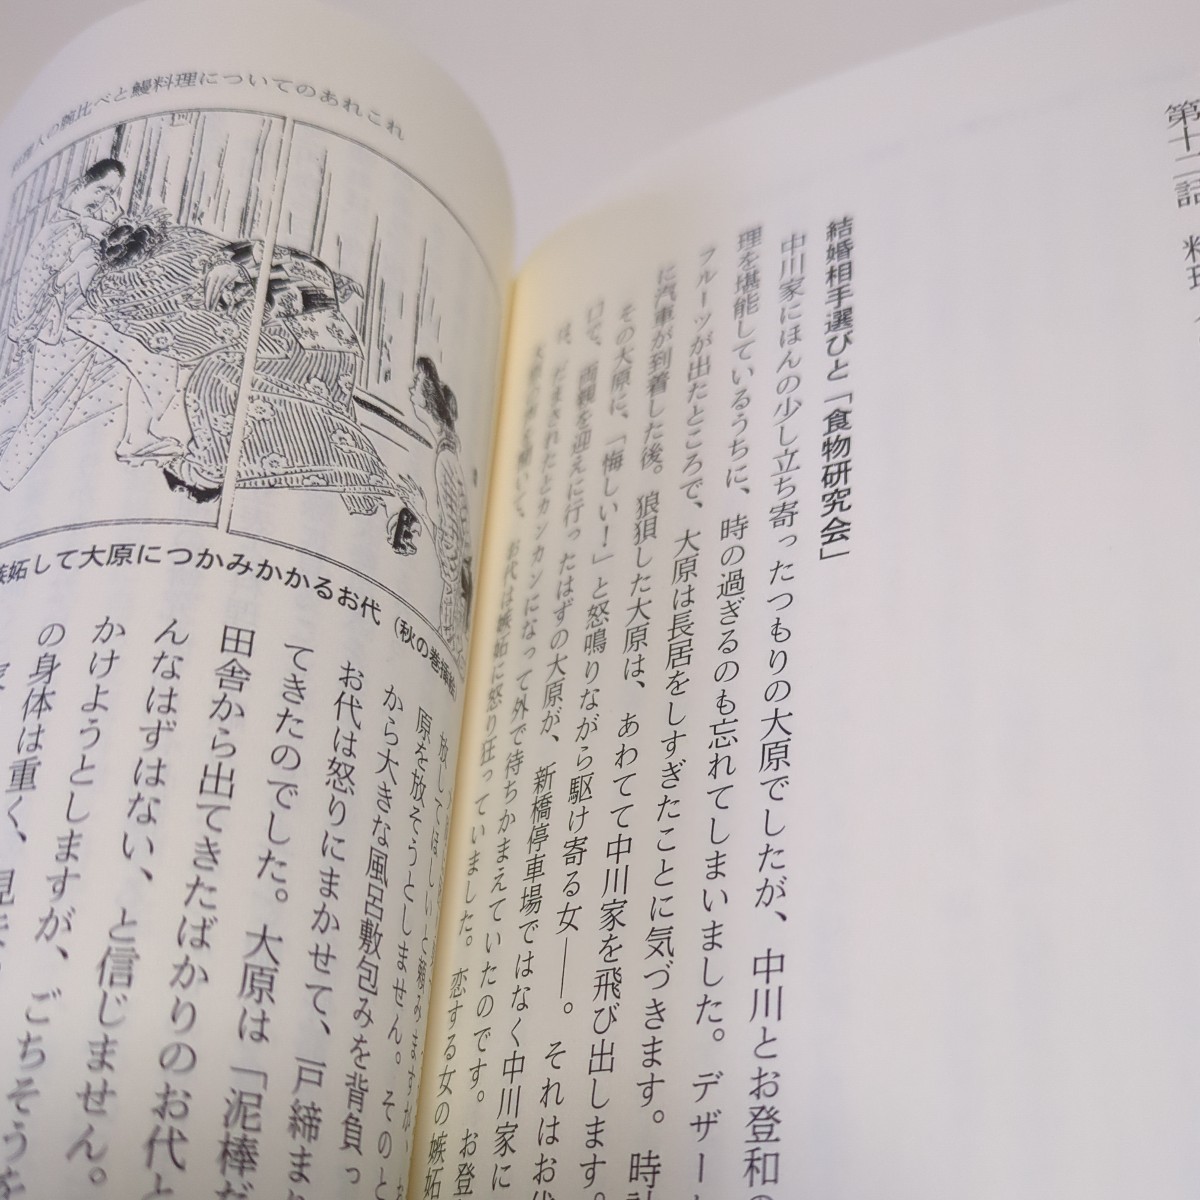 第十二記 料理
結婚相手選びと「食物研究会」
中川家にほんの少し立ち寄ったつもりの大原でしたが、中川とお登和の
理を堪能しているうちに、時の過ぎるのも忘れてしまいました。デザート
フルーツが出たところで、大原は長居をしすぎたことに気づきます。時計
に汽車が到着した後。狼狽した大原は、あわてて中川家を飛び出します。
その大原に、「悔しい！」と怒鳴りながら駆け寄る女――。それはお代
口で、両親を迎えに行ったはずの大原が、新橋停車場ではなく中川家に
は、だまされたとカンカンになって外で待ちかまえていたのです。お登
を聞いて、お代は嫉妬に怒り狂っていました。恋する女の嫉妬
人の腕比べと鰻料理についてのあれこれ
嫉妬して大原につかみかかるお代（秋の巻挿絵
放してほしいと頼みますが、
原を放そうとしません。そのと
から大きな風呂敷包みを背負っ
お代は怒りにまかせて、戸締まり
てきたのでした。大原は「泥棒だ
田舎から出てきたばかりのお代と
んなはずはない、と信じません。
かけようとしますが、ごちそうを
の身体は重く、